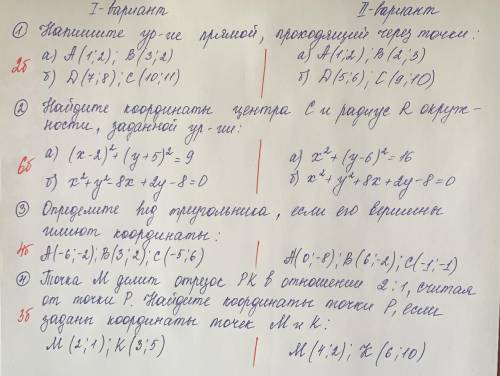 I-вариант II-вариант
① Напишите ур-ие прямой, проходящий через точки:
2б а) A(1;2); B(3;2) а) A(1;2); B(2;3)
б) D(7;8); C(10;11) б) D(5;6); C(9;10)
② Найдите координаты центра C и радиус R окруж-
ности, заданной ур-ии:
6б а) (x-2)²+(y+5)²=9 а) x²+(y-6)²=16
б) x²+y²-8x+2y-8=0 б) x²+y²+8x+2y-8=0
③ Определите вид треугольника, если его вершины
имеют координаты:
4б A(-6;-2); B(3;2); C(-5;6) A(0;-8); B(6;-2); C(-1;-1)
④ Точка M делит отрезок PK в отношении 2:1, считая
от точки P. Найдите координаты точки P, если
3б заданы координаты точек M и K:
M(2;1); K(3;5) M(4;2); K(6;10)